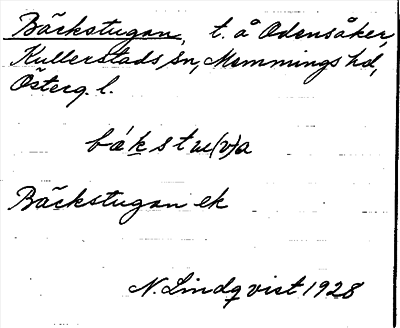 Bäckstugan, t. å Odensåker,
Kullerstads sn, Memmings hd,
Österg. l.
bákstu(v)a
Bäckstugan ek
N. Lindqvist 1928